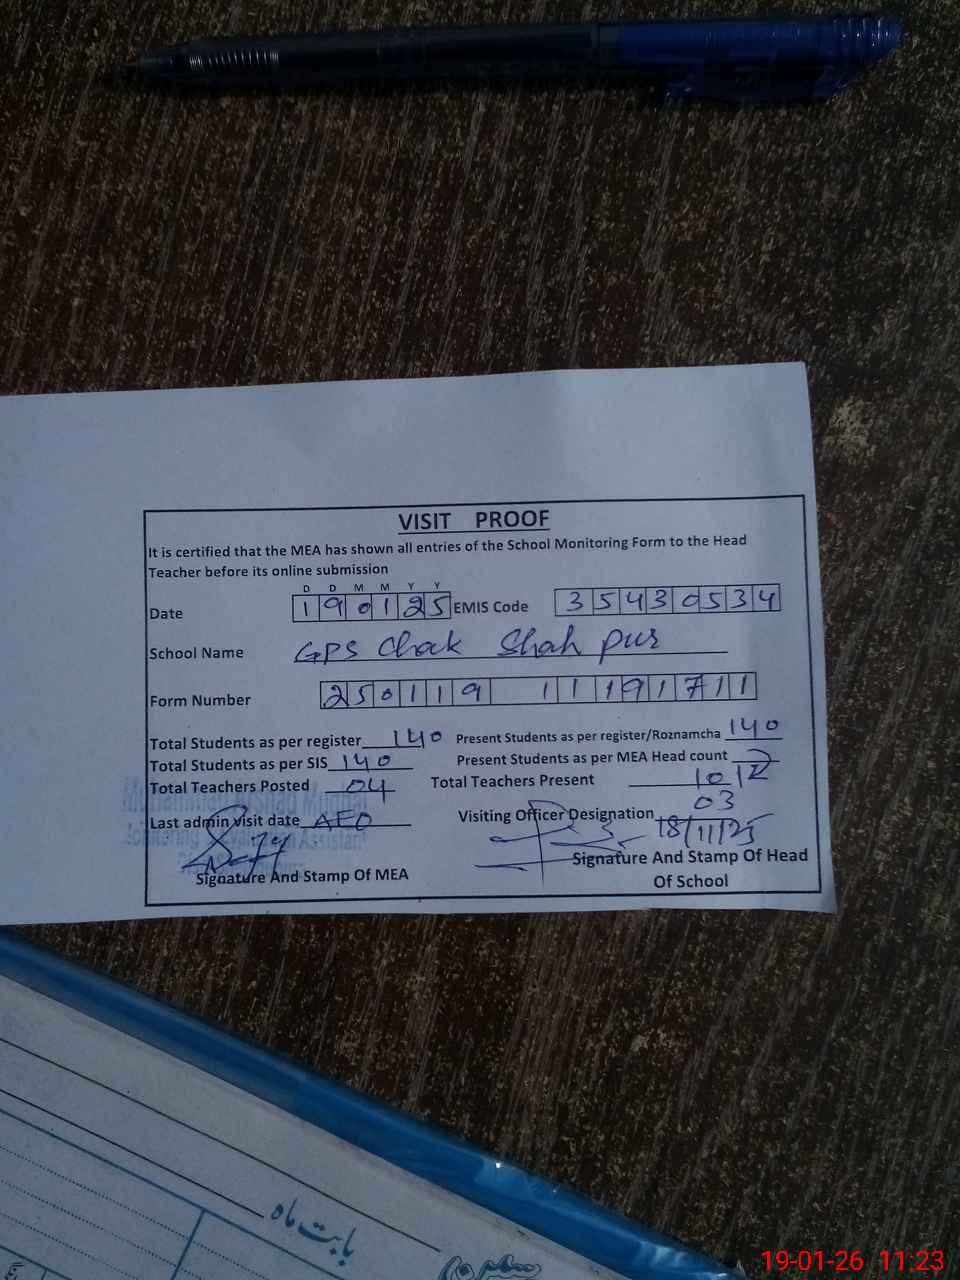 VISIT PROOF
It is certified that the MEA has shown all entries of the School Monitoring Form to the Head
Teacher before its online submission
D D M M Y Y
Date 190125 EMIS Code 35430534
School Name GPS Chak Shah pur
Form Number 250119 11191711
Total Students as per register 140 Present Students as per register/Roznamcha 140
Total Students as per SIS 140 Present Students as per MEA Head count
Total Teachers Posted 04 Total Teachers Present
03
Last admin visit date AEO Visiting Officer Designation 18/11/25
Signature And Stamp Of MEA Signature And Stamp Of Head
Of School
بابت ماہ
19-01-26 11:23